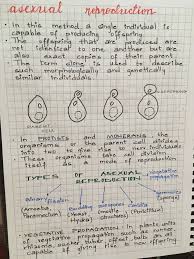 asexual reproduction
• In this method a single individual is
capable of producing offspring.
• The offspring that are produced are
not identical to one another but are
also exact copies of their parent.
• The term clone is used to describe
such morphologically and genetically
similar individuals.
• In PROTISTS and MONERANS the
organism or the parent cell divides
into two to give rise to new individuals
• These organisms take cell division
itself as a mode of reproduction.
TYPES OF ASEXUAL
REPRODUCTION
vegetative
binary
fission
budding
• VEGETATIVE PROPAGATION: In plants units
of vegetative propagation such as runner
rhizome, sucker, tuber, offset, bulb are all
capable of giving rise to new offspring